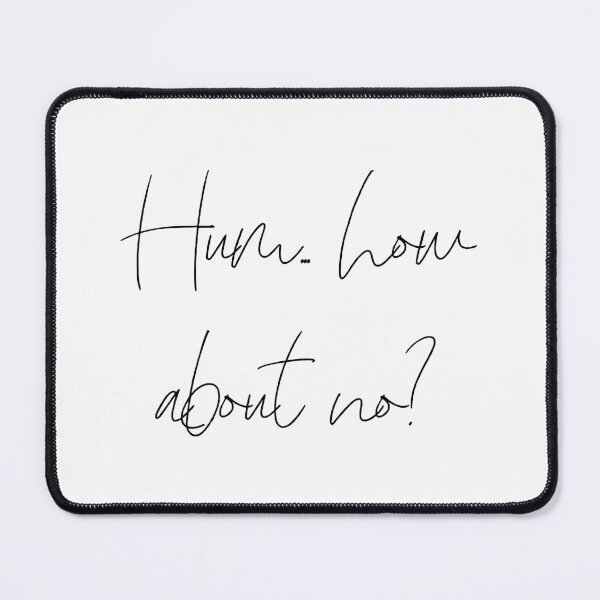 Hum... how
about no?